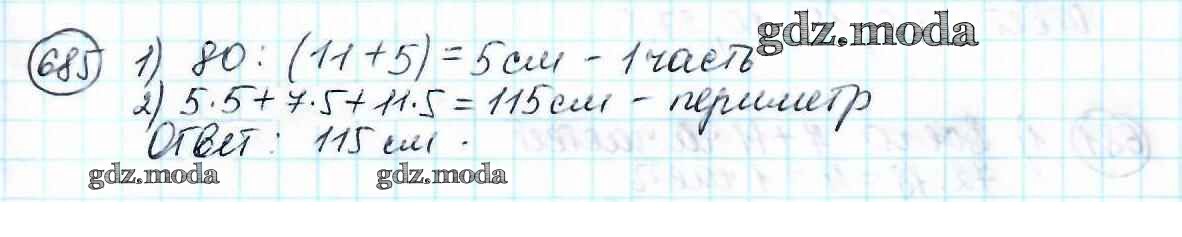 gdz.moda
685 1) 80 : (11 + 5) = 5 см - 1 часть
2) 5·5 + 7·5 + 11·5 = 115 см - периметр
Ответ: 115 см.
gdz.moda gdz.moda